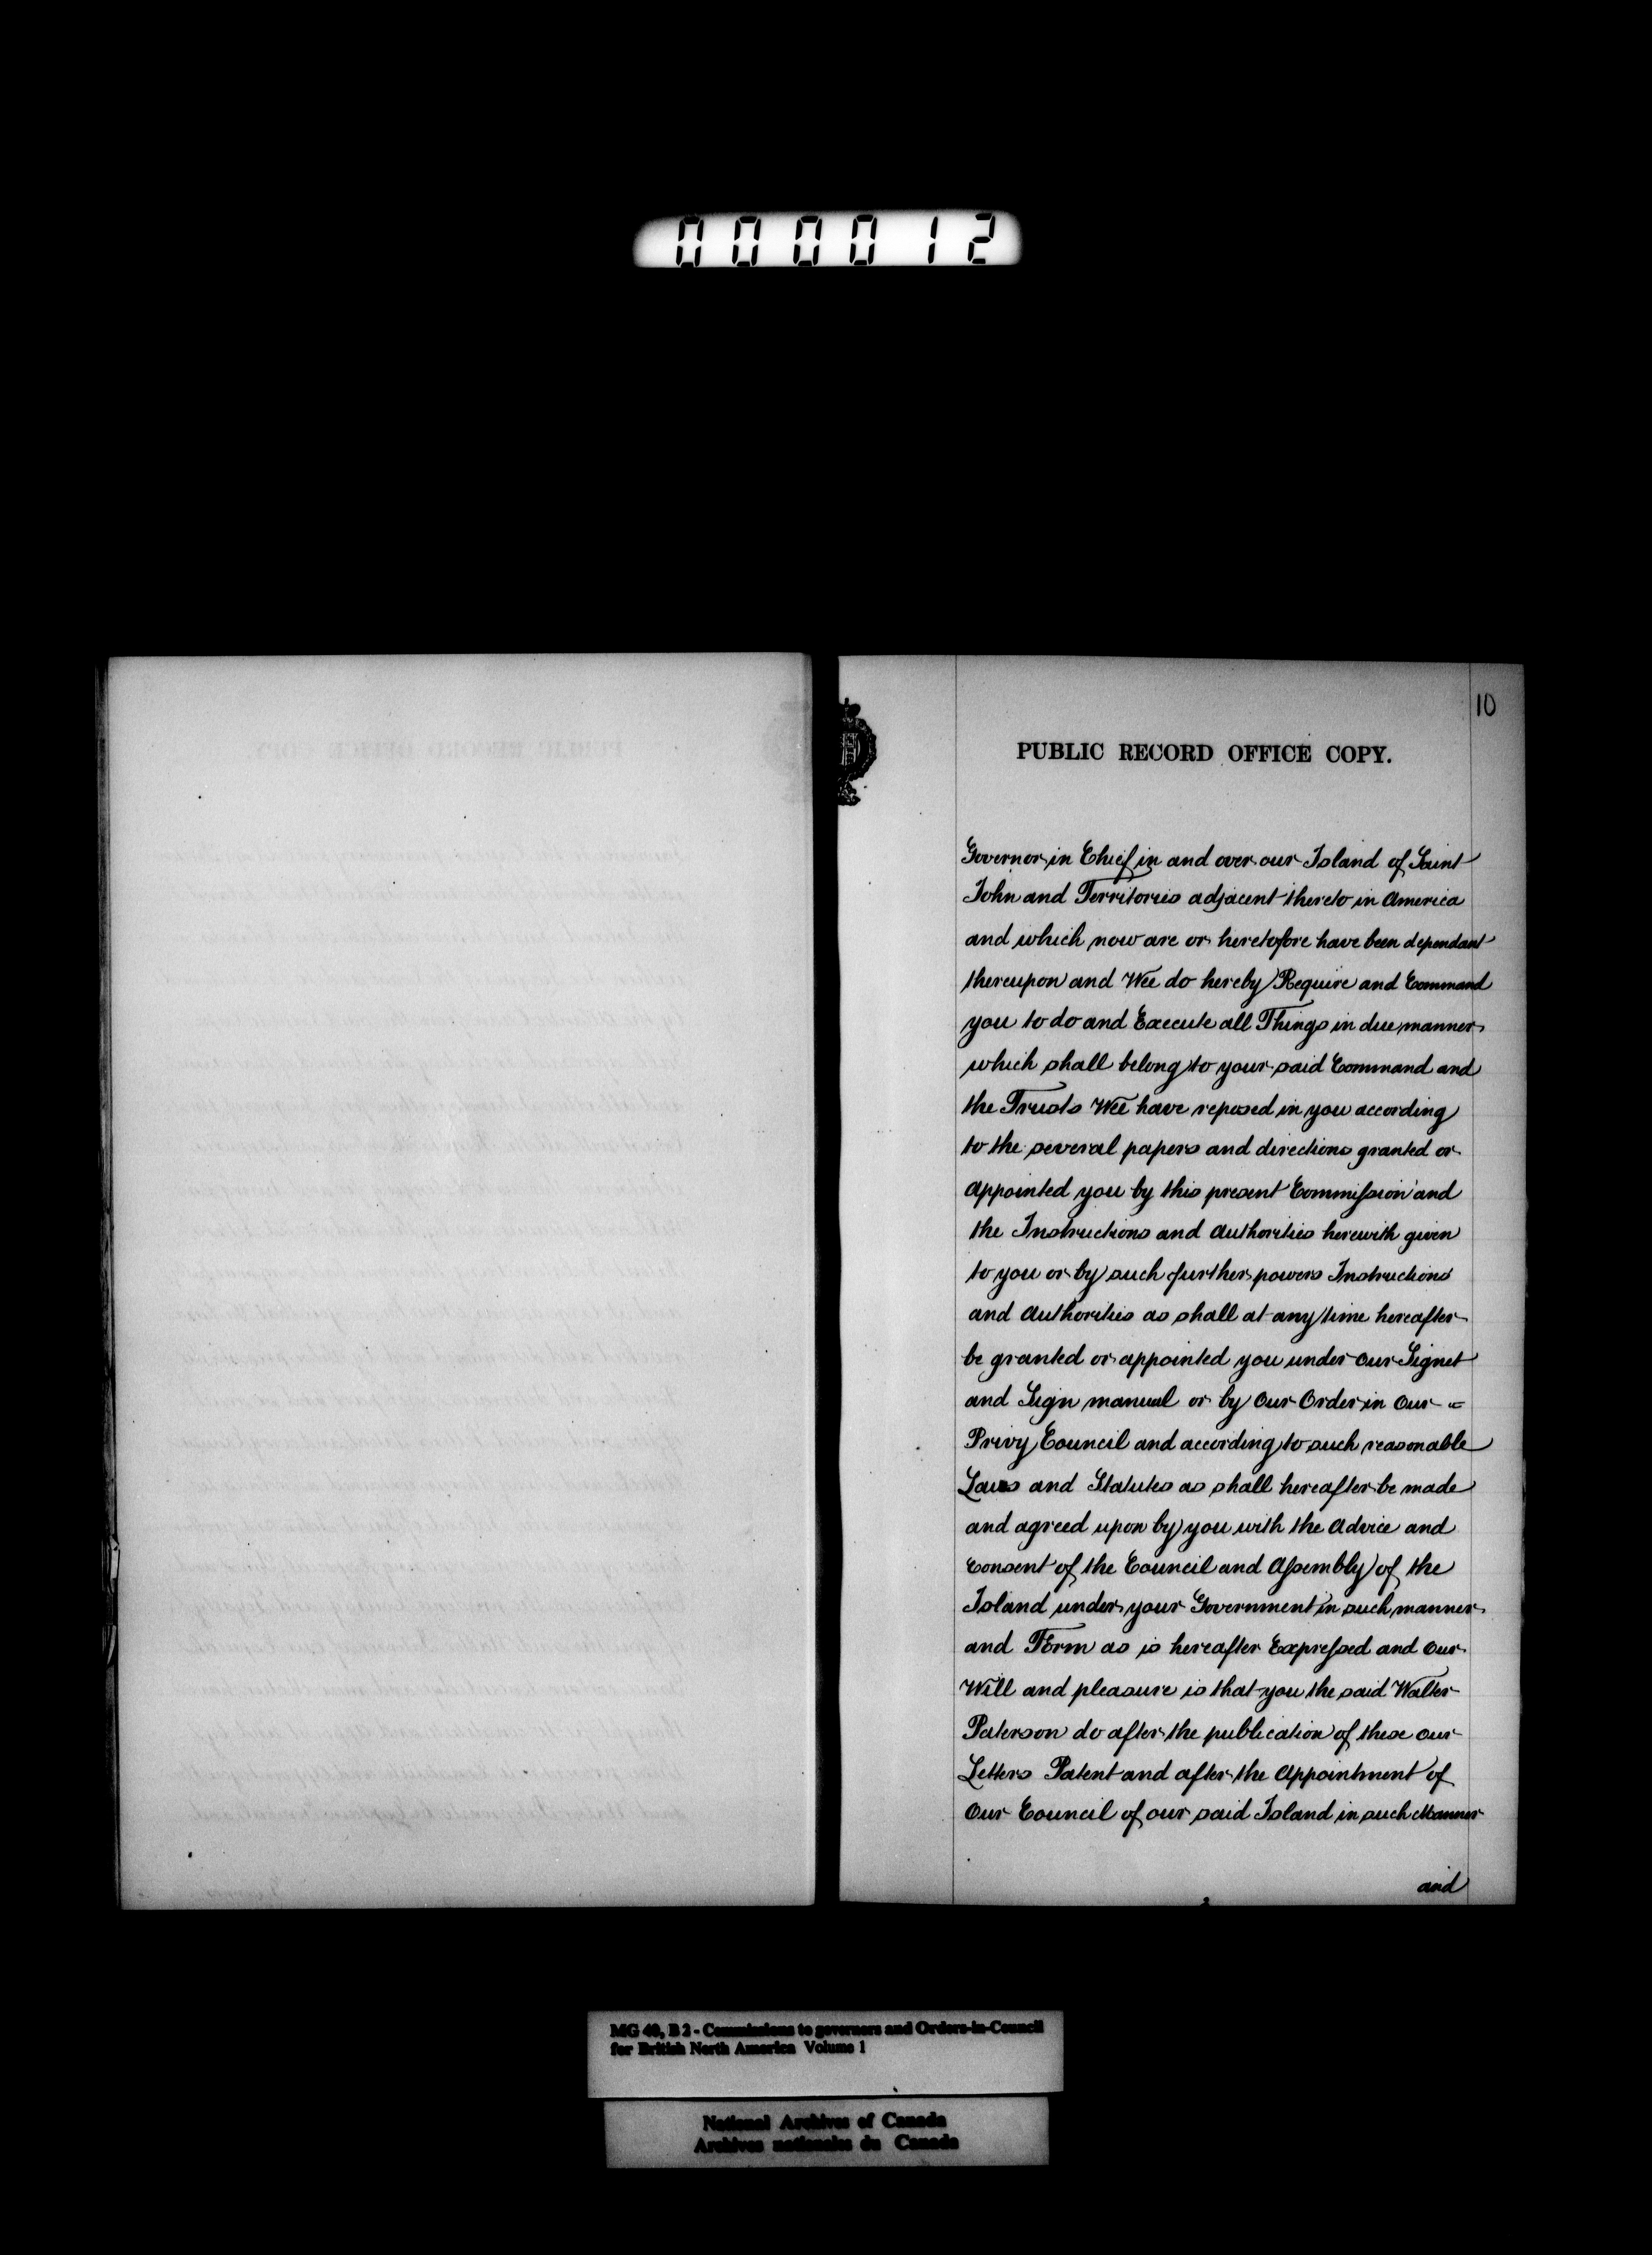 000012
10
PUBLIC RECORD OFFICE COPY.
Governor in Chief in and over our Island of Saint
John and Territories adjacent thereto in America
and which now are or heretofore have been dependant
thereupon and Wee do hereby Require and Command
you to do and Execute all Things in due manner
which shall belong to your said Command and
the Trusts Wee have reposed in you according
to the several papers and directions granted or
appointed you by this present Commission and
the Instructions and Authorities herewith given
to you or by such further powers Instructions
and Authorities as shall at any time hereafter
be granted or appointed you under our Signet
and Sign manual or by Our Order in Our =
Privy Council and according to such reasonable
Laws and Statutes as shall hereafter be made
and agreed upon by you with the Advice and
Consent of the Council and Assembly of the
Island under your Government in such manner
and Form as is hereafter Expressed and Our
Will and pleasure is that you the said Walter
Paterson do after the publication of these our
Letters Patent and after the Appointment of
Our Council of our said Island in such Manner
and
MG 40, B 2 - Commissions to governors and Orders-in-Council
for British North America Volume 1
National Archives of Canada
Archives nationales du Canada